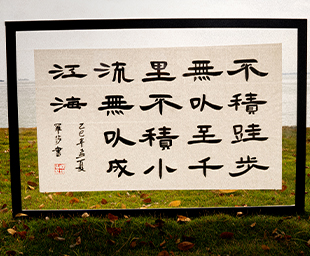 不積跬步
無以至千
里不積小
流無以成
江海
乙巳年孟夏
書